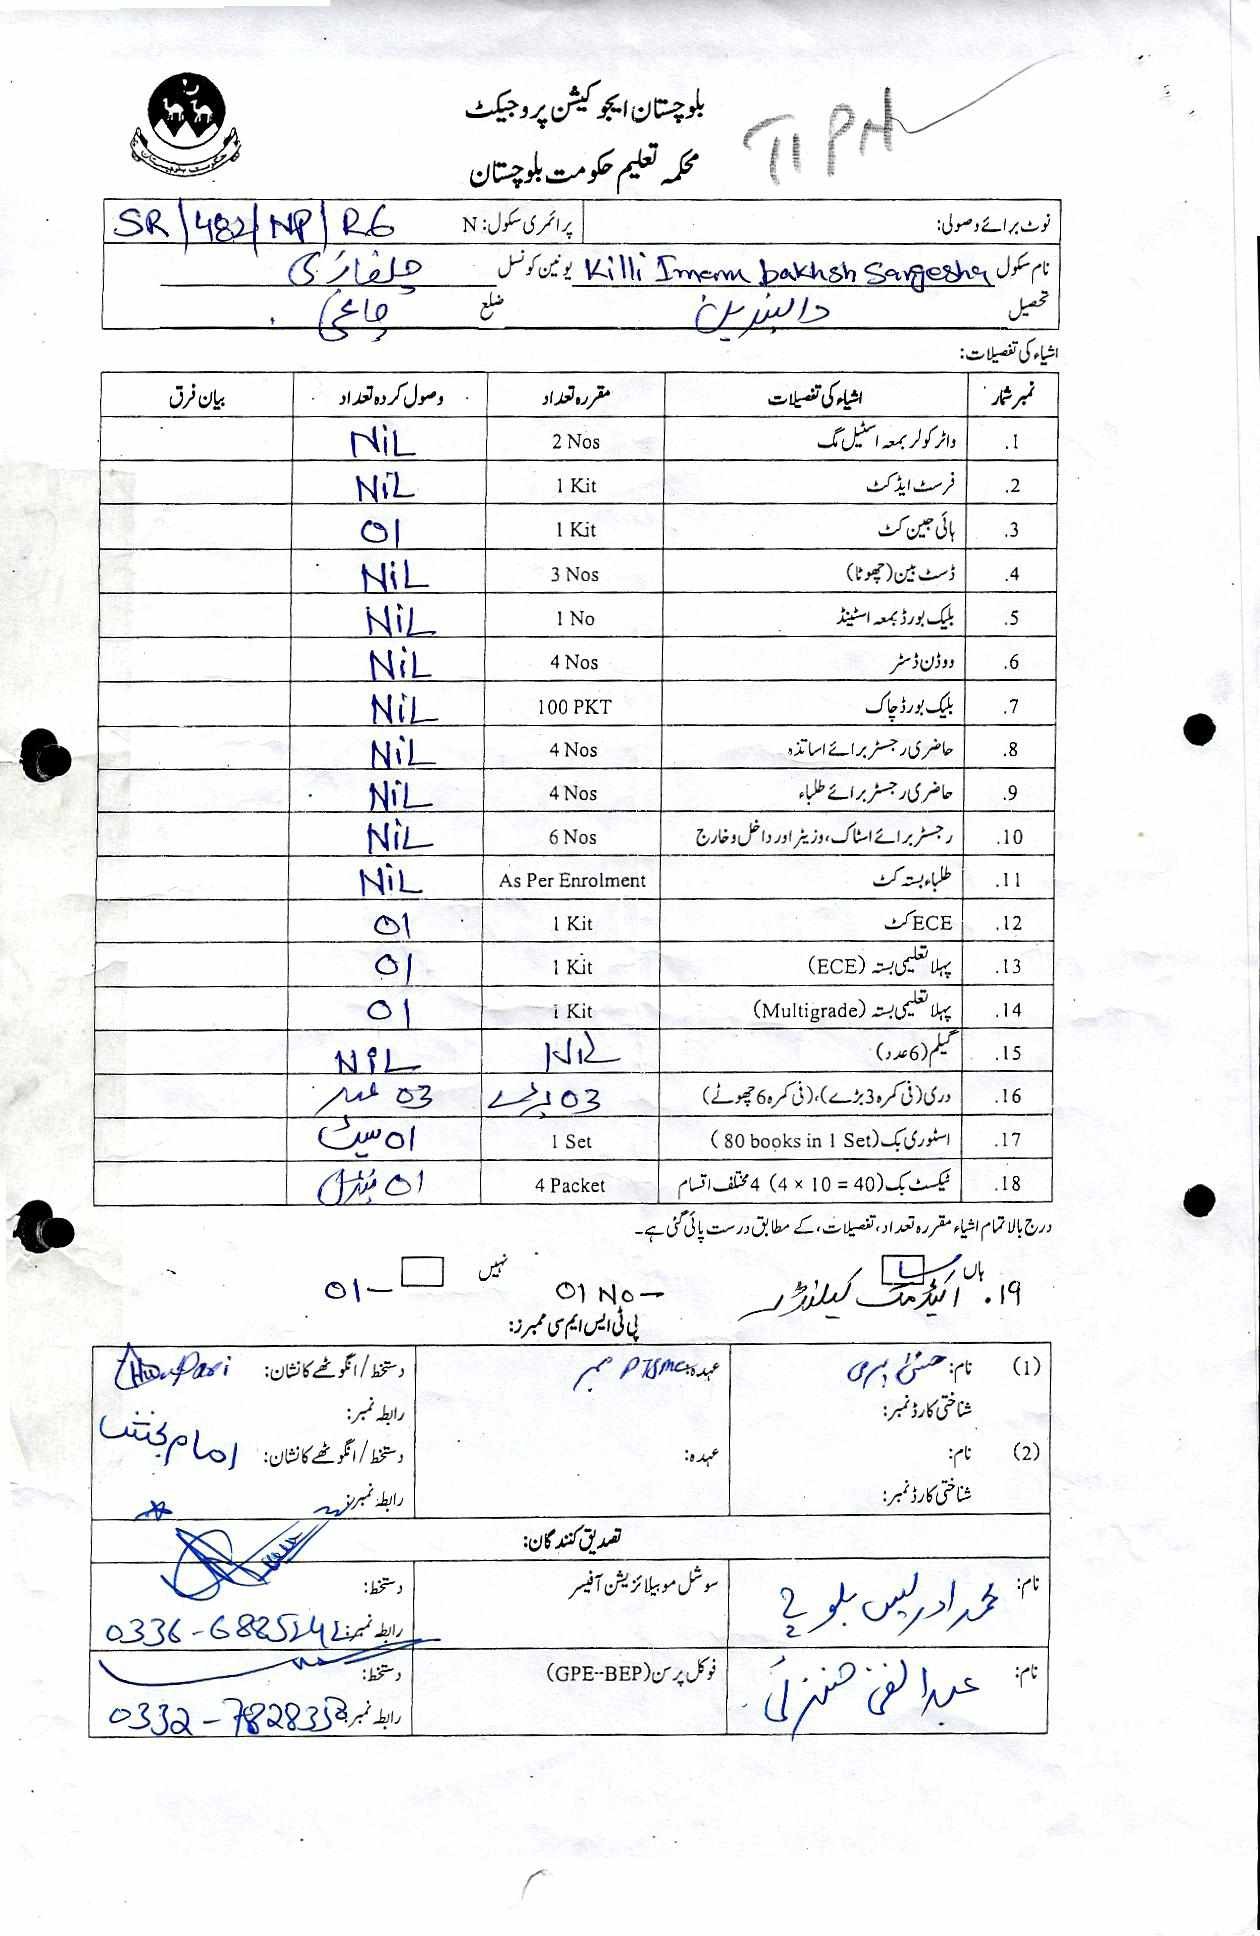 بلوچستان ایجوکیشن پروجیکٹ
محکمہ تعلیم حکومت بلوچستان
نوٹ برائے وصولی: پرائمری سکول: N SR/482/NP/R6
نام سکول Killi Imam bakhsh Sargesha یونین کونسل
تحصیل دالبندین ضلع چاغی
اشیاء کی تفصیلات:
نمبر شمار اشیاء کی تفصیلات مقررہ تعداد وصول کردہ تعداد بیان فرق
1. واٹر کولر بمعہ اسٹیل مگ 2 Nos NiL
2. فرسٹ ایڈ کٹ 1 Kit NiL
3. ہائی جین کٹ 1 Kit 01
4. ڈسٹ بین (چھوٹا) 3 Nos NiL
5. بلیک بورڈ بمعہ اسٹینڈ 1 No NiL
6. ووڈن ڈسٹر 4 Nos NiL
7. بلیک بورڈ چاک 100 PKT NiL
8. حاضری رجسٹر برائے اساتذہ 4 Nos NiL
9. حاضری رجسٹر برائے طلباء 4 Nos NiL
10. رجسٹر برائے اسٹاک، وزیٹر اور داخل و خارج 6 Nos NiL
11. طلباء بستہ کٹ As Per Enrolment NiL
12. ECE کٹ 1 Kit 01
13. پہلا تعلیمی بستہ (ECE) 1 Kit 01
14. پہلا تعلیمی بستہ (Multigrade) 1 Kit 01
15. گیلم (6 عدد) NiL NiL
16. دری (فی کمرہ 3 بڑے)، (فی کمرہ 6 چھوٹے) 03 بڑے 03 عدد
17. اسٹوری بک (80 books in 1 Set) 1 Set 01 سیٹ
18. ٹیکسٹ بک (4 × 10 = 40) 4 مختلف اقسام 4 Packet 01 بنڈل
درج بالا تمام اشیاء مقررہ تعداد، تفصیلات، کے مطابق درست پائی گئی ہے۔
ہاں نہیں
۱۹. اکیڈمک کیلنڈر 01 No – 01
پی ٹی ایس ایم سی ممبرز:
(1) نام: عہدہ: PTSMC ممبر دستخط / انگوٹھے کا نشان: Pari
شناختی کارڈ نمبر: رابطہ نمبر:
(2) نام: عہدہ: دستخط / انگوٹھے کا نشان: امام بخش
شناختی کارڈ نمبر: رابطہ نمبر:
تصدیق کنندگان:
نام: محمد ادریس بلوچ سوشل موبیلائزیشن آفیسر دستخط:
رابطہ نمبر:
نام: عبدالغنی فوکل پرسن (GPE--BEP) دستخط:
رابطہ نمبر: